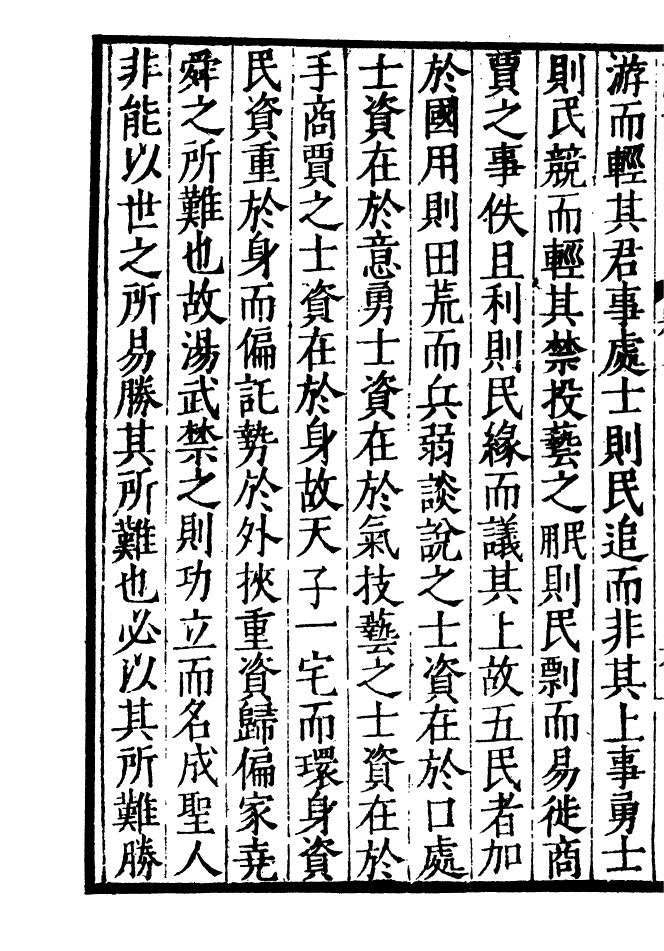 游而輕其君事處士則民追而非其上事勇士
則民競而輕其禁投藝之用民則民剽而易徙商
賈之事佚且利則民緣而議其上故五民者加
於國用則田荒而兵弱談說之士資在於口處
士資在於意勇士資在於氣技藝之士資在於
手商賈之士資在於身故天子一宅而環身資
民資重於身而偏託勢於外挾重資歸偏家堯
舜之所難也故湯武禁之則功立而名成聖人
非能以世之所易勝其所難也必以其所難勝